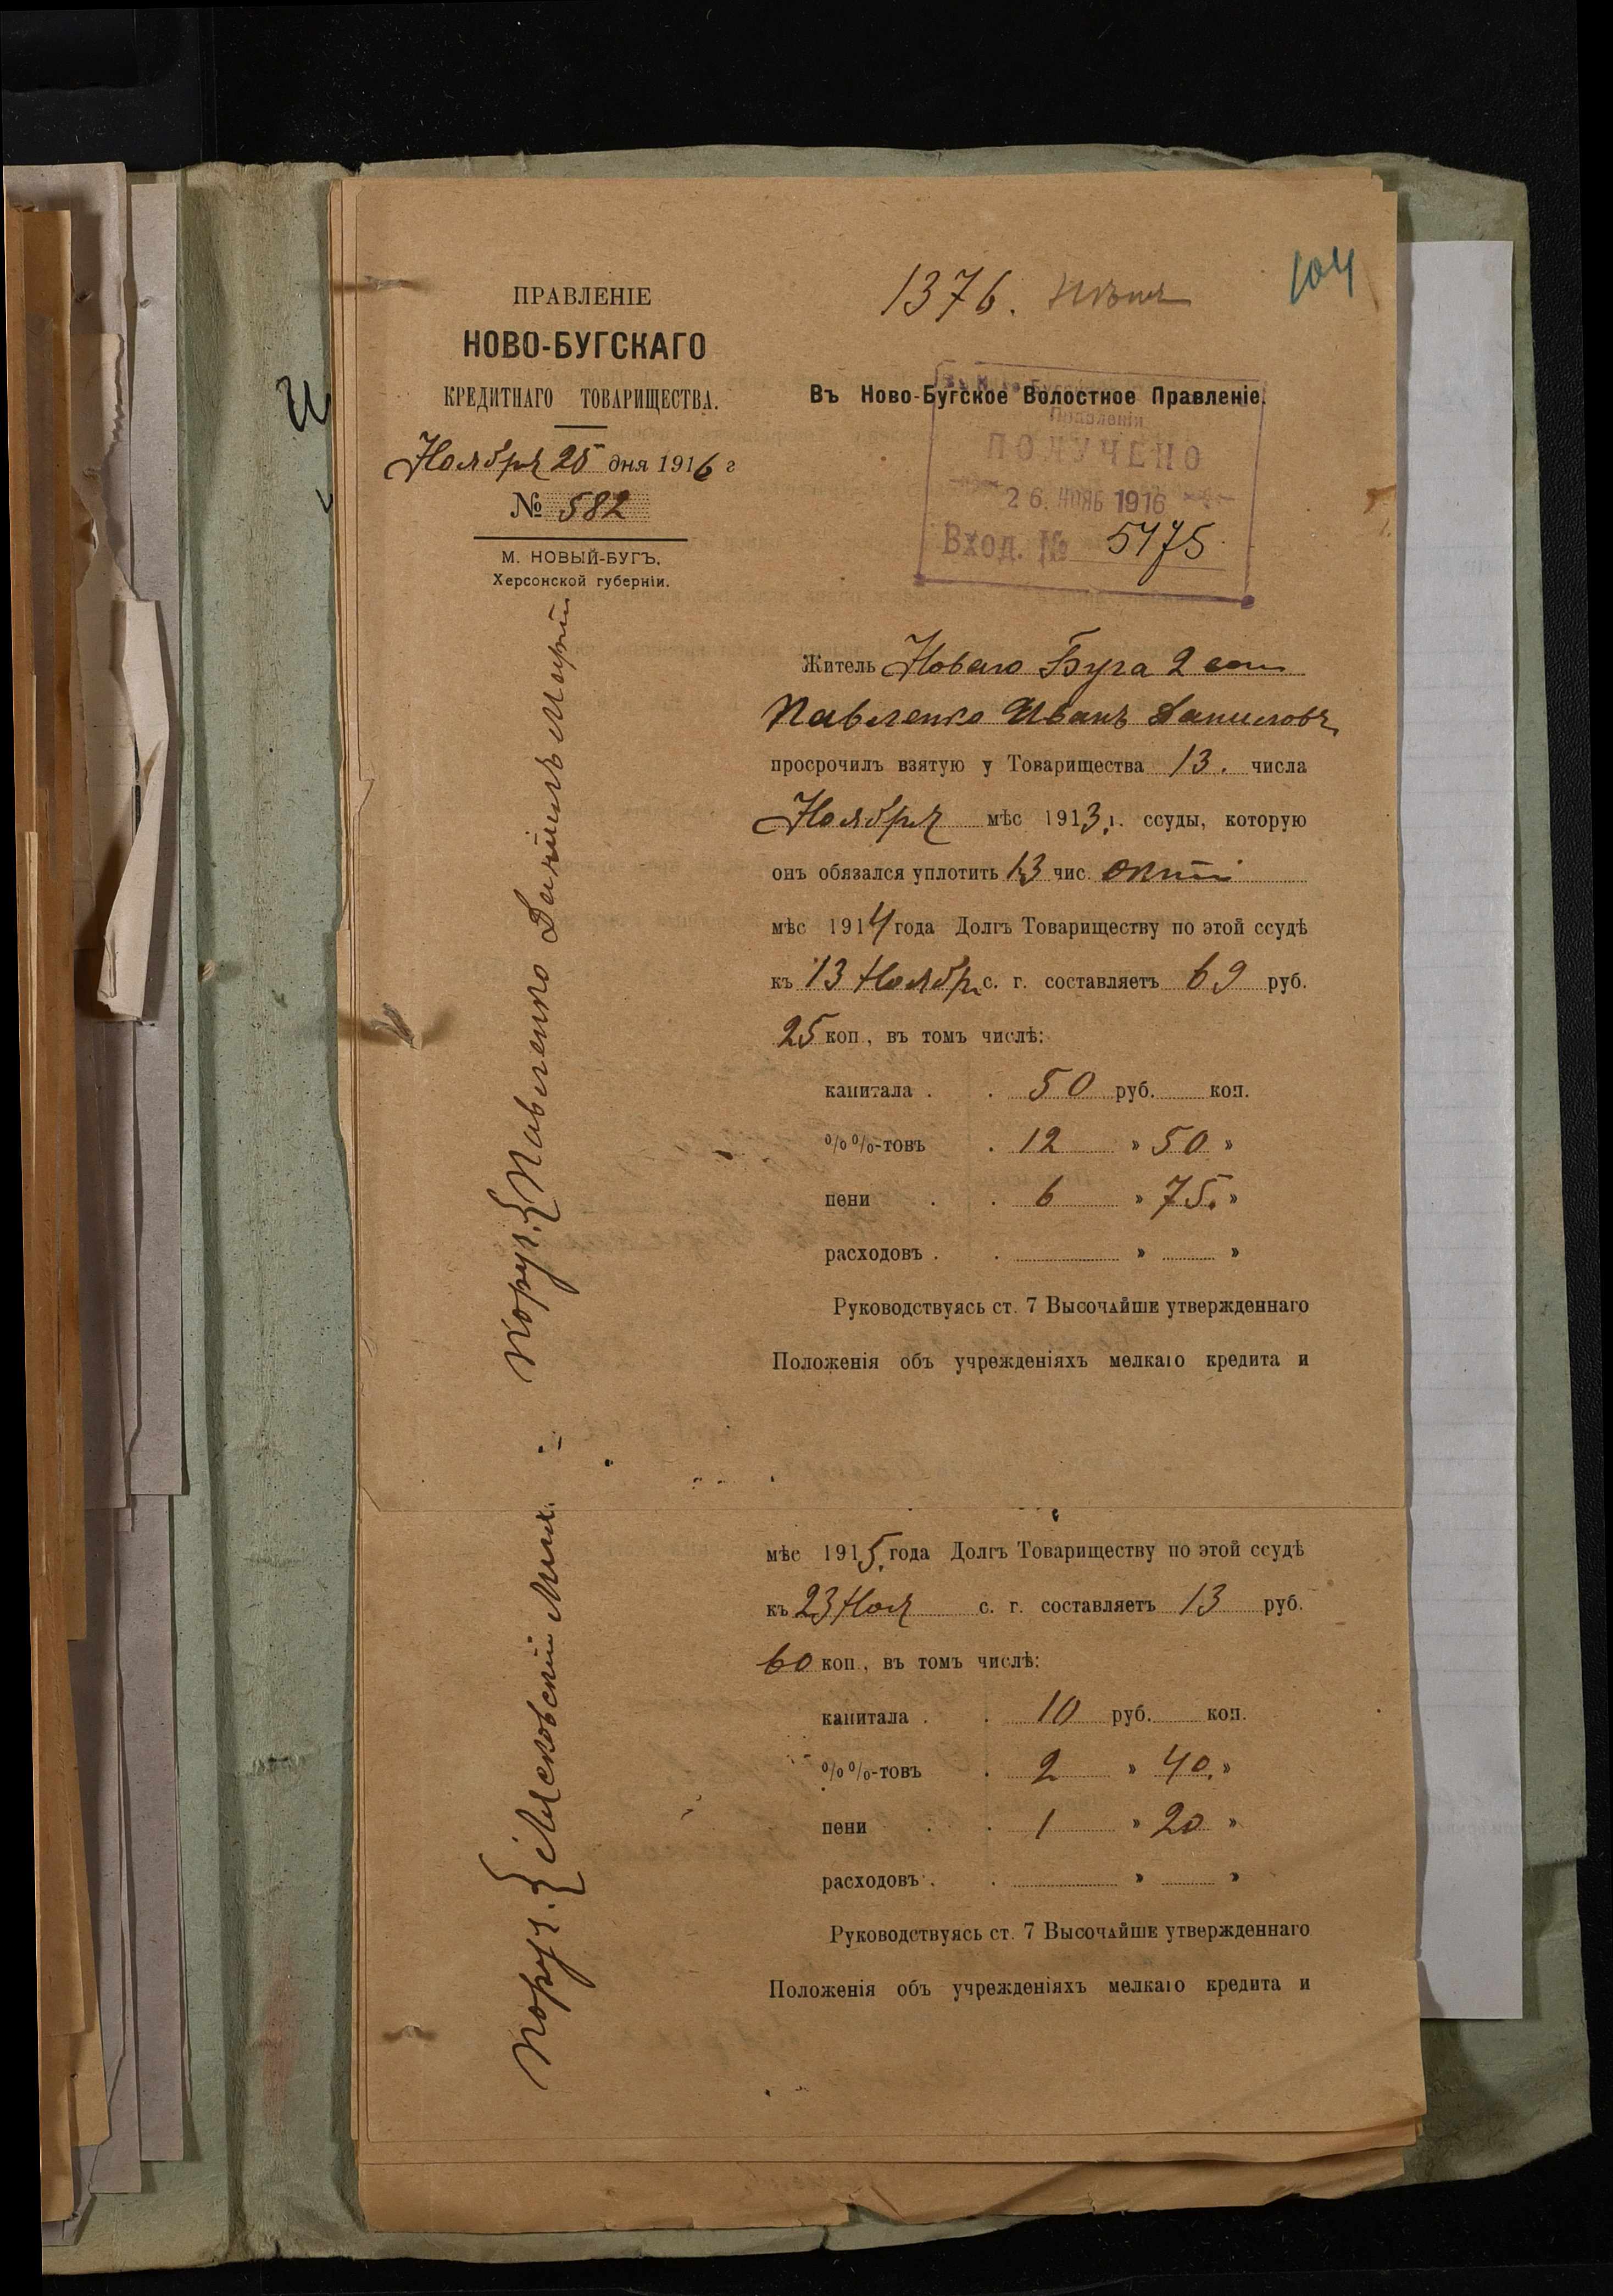 104
1376.
ПРАВЛЕНІЕ
НОВО-БУГСКАГО
КРЕДИТНАГО ТОВАРИЩЕСТВА.
Ноября 25 дня 1916 г
№ 582
М. НОВЫЙ-БУГЪ.
Херсонской губерніи.
Въ Ново-Бугское Волостное Правленіе.
Правленія
ПОЛУЧЕНО
26. НОЯБ 1916
Вход. № 5475
Житель Новаго Буга 2 сот
Павленко Иванъ Даниловъ
просрочилъ взятую у Товарищества 13. числа
Ноября мѣс 1913 г. ссуды, которую
онъ обязался уплотить 13 чис. Окт
мѣс 1914 года Долгъ Товариществу по этой ссудѣ
къ 13 Ноябр с. г. составляетъ 69 руб.
25 коп., въ томъ числѣ:
капитала . . 50 руб. коп.
%%-товъ . 12 » 50 »
пени . . 6 » 75. »
расходовъ . . » »
Руководствуясь ст. 7 Высочайше утвержденнаго
Положенія объ учрежденіяхъ мелкаго кредита и
Поруч. { Павленко Данилъ
мѣс 1915 года Долгъ Товариществу по этой ссудѣ
къ 23 Ноя с. г. составляетъ 13 руб.
60 коп., въ томъ числѣ:
капитала . . 10 руб. коп.
%%-товъ . 2 » 40. »
пени . . 1 » 20 »
расходовъ . . » »
Руководствуясь ст. 7 Высочайше утвержденнаго
Положенія объ учрежденіяхъ мелкаго кредита и
Поруч. {